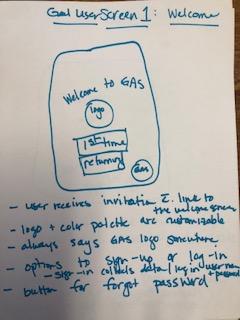 Goal User Screen 1: Welcome
Welcome to GAS
logo
1st time
returning
GAS
- user receives invitation c̄ link to
the welcome screen
- logo + color palette are customizable
- always says GAS logo somewhere
- options to sign-up or log-in
- sign-in collects data / log in username
+ password
- button for forgot password